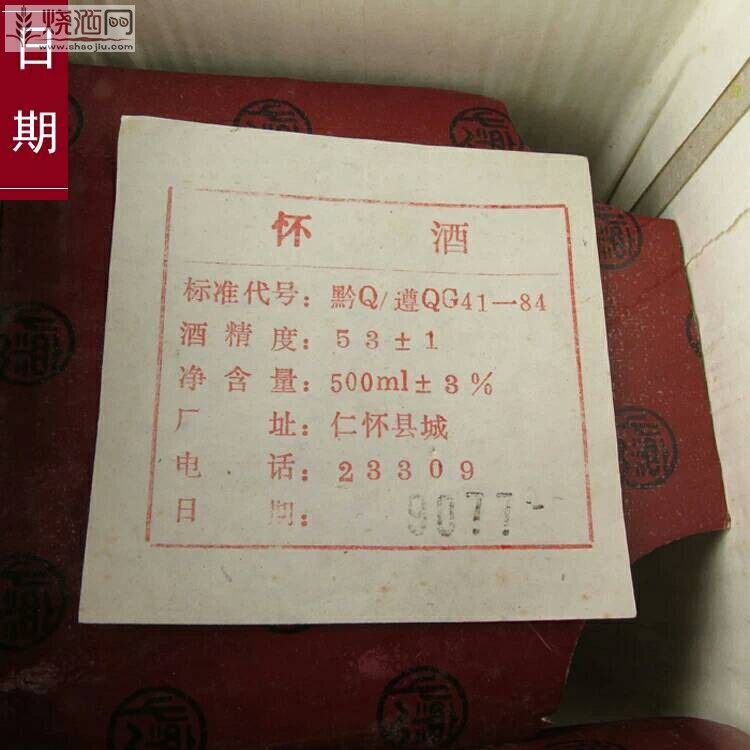 烧酒网
www.shaojiu.com
日期
怀 酒
标准代号：黔Q/遵QG41—84
酒精度：53±1
净含量：500ml±3%
厂址：仁怀县城
电话：23309
日期：9077